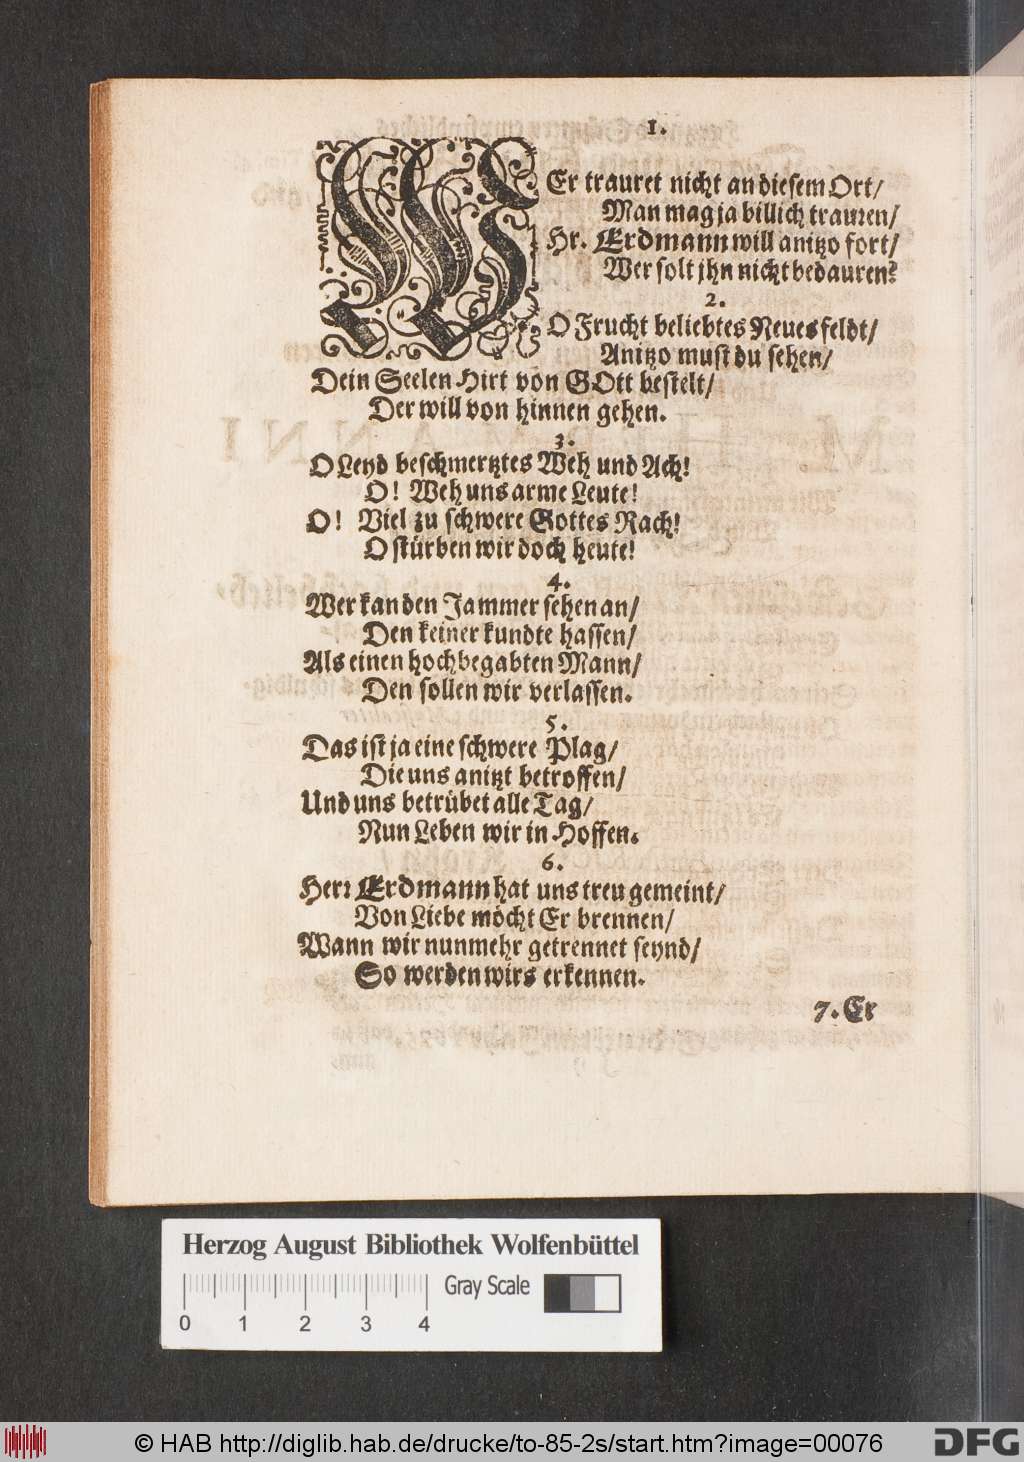 1.
WEr trauret nicht an diesem Ort/
Man mag ja billich trauren/
Hr. Erdmann will anitzo fort/
Wer solt jhn nicht bedauren?
2.
O Frucht beliebtes Neues feldt/
Anitzo must du sehen/
Dein Seelen Hirt von GOtt bestelt/
Der will von hinnen gehen.
3.
O Leyd beschmertztes Weh und Ach!
O! Weh uns arme Leute!
O! Viel zu schwere Gottes Rach!
O stürben wir doch heute!
4.
Wer kan den Jammer sehen an/
Den keiner kundte hassen/
Als einen hochbegabten Mann/
Den sollen wir verlassen.
5.
Das ist ja eine schwere Plag/
Die uns anitzt betroffen/
Und uns betrübet alle Tag/
Nun Leben wir in Hoffen.
6.
Herr Erdmann hat uns treu gemeint/
Von Liebe möcht Er brennen/
Wann wir nunmehr getrennet seynd/
So werden wirs erkennen.
7. Er
Herzog August Bibliothek Wolfenbüttel
Gray Scale
0 1 2 3 4
© HAB http://diglib.hab.de/drucke/to-85-2s/start.htm?image=00076
DFG